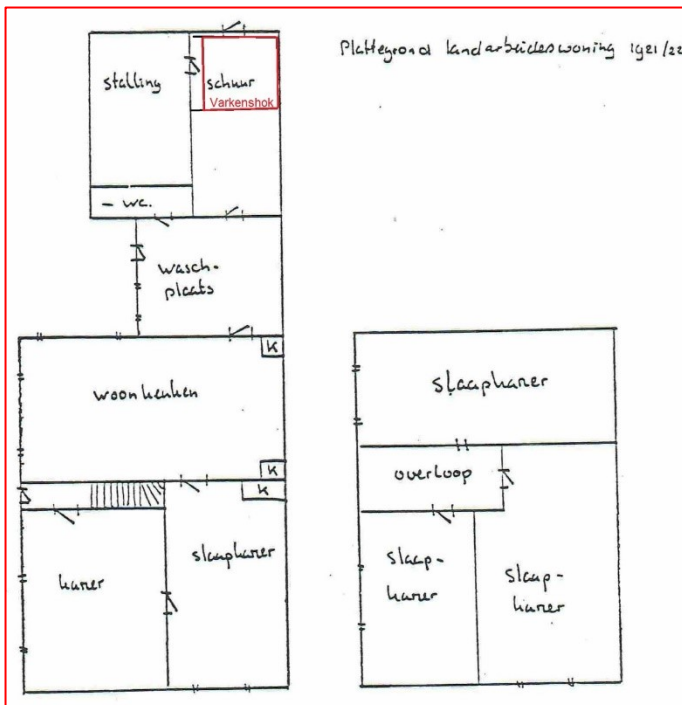 Plattegrond landarbeiderswoning 1921/22
stalling
schuur
Varkenshok
- wc.
wasch-
plaats
K
woonkeuken
K
K
kamer
slaapkamer
slaapkamer
overloop
slaap-
kamer
slaap-
kamer